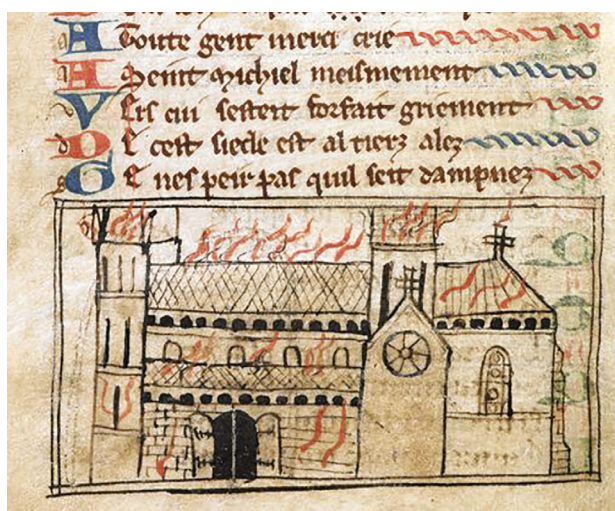 A Toute gent merci crie
A Seint Michiel meismement
VErs cui sesteit forfait griement
DE cest siecle est al tierz alez
GE nespeir pas quil seit dampnez